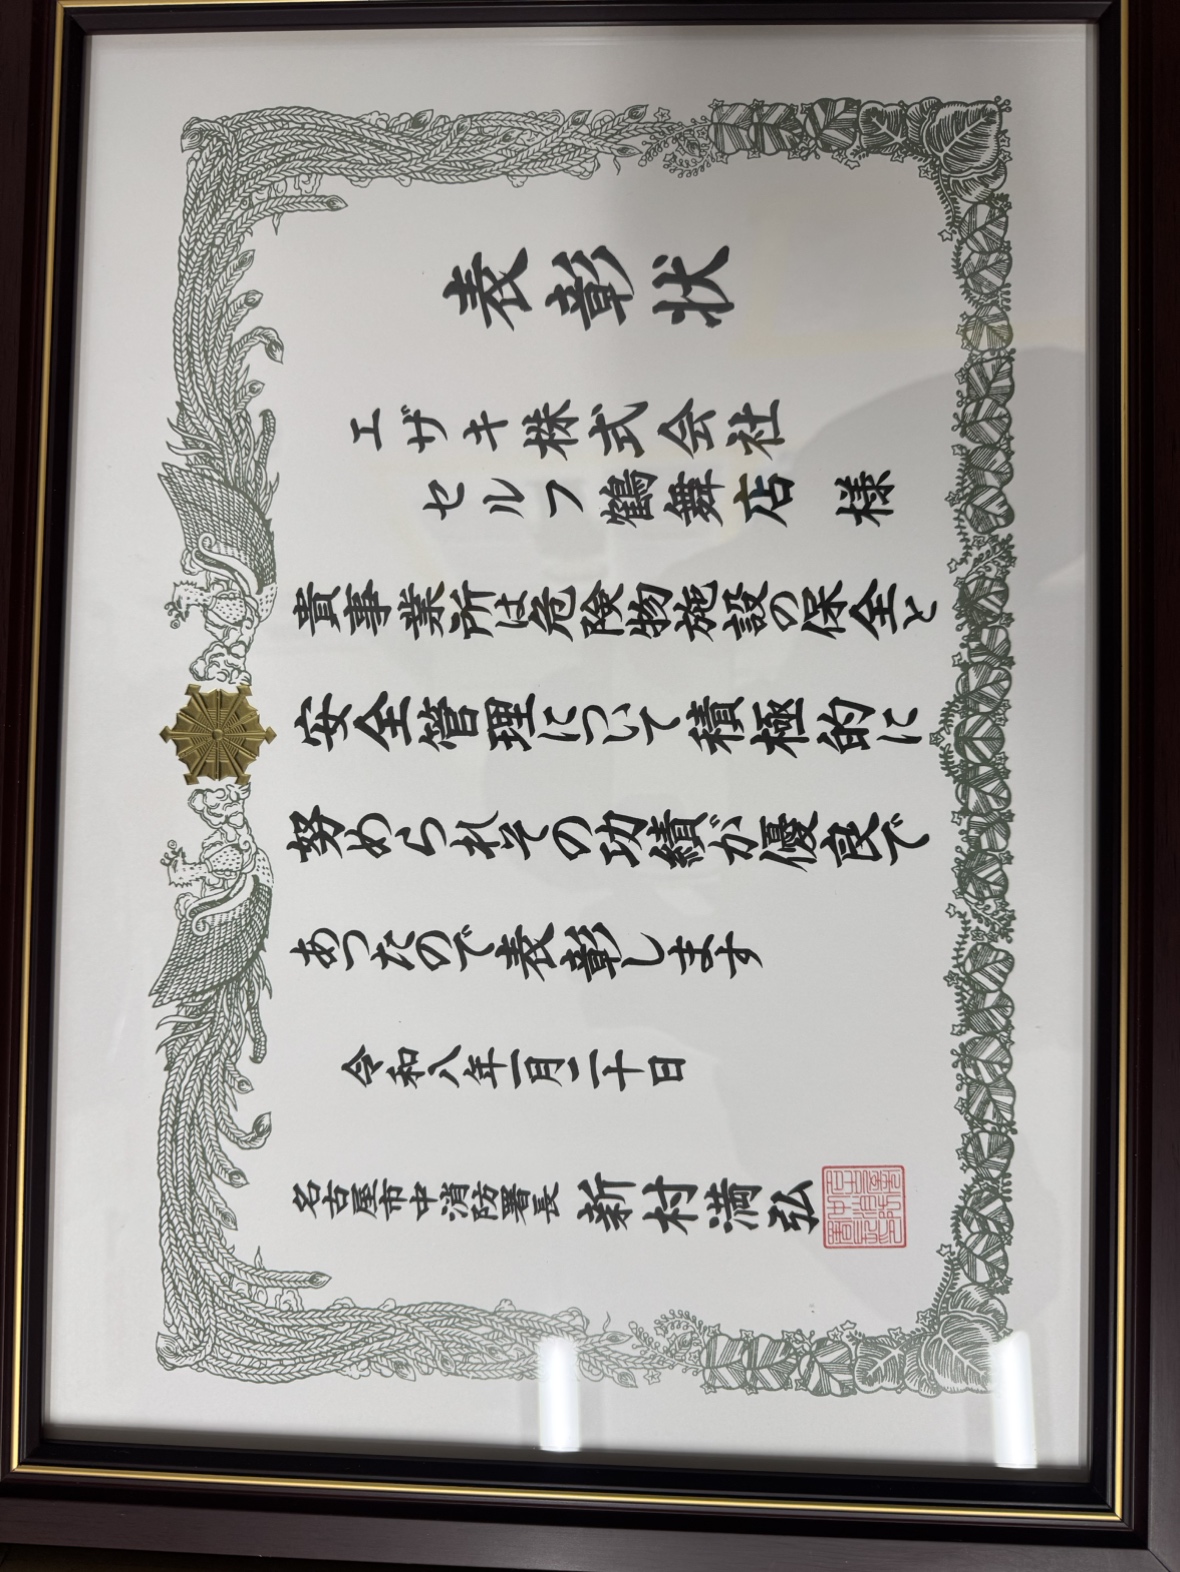 表彰状
エザキ株式会社
セルフ鶴舞店 様
貴事業所は危険物施設の保全と
安全管理について積極的に
努められその功績が優良で
あったので表彰します
令和八年一月二十日
名古屋市中消防署長 新村満弘